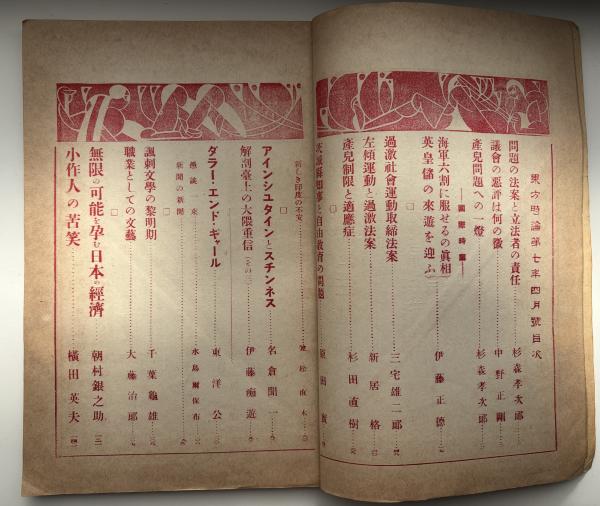 東方時論第七年四月號目次
問題の法案と立法者の責任 杉森孝次郎
議會の惡評は何の徵 中野正剛
產兒問題への一燈 杉森孝次郎
國際時事
海軍六割に服せるの眞相
英皇儲の來遊を迎ふ 伊藤正德
過激社會運動取締法案 三宅雄二郎
左傾運動と過激法案 新居格
產兒制限と適應症 杉田直樹
自由敎育の問題 原田實
新しき印度の不安 直木
アインシュタインとスチンネス 名倉聞一
解剖臺上の大隈重信(その三) 伊藤痴遊
ダラー・エンド・ギャール 東洋公
漫談一束
新聞の新聞 水島爾保布
諷刺文學の黎明期 千葉龜雄
職業としての文藝 大藤治郎
無限の可能を孕む日本の經濟 朝村銀之助
小作人の苦笑 橫田英夫